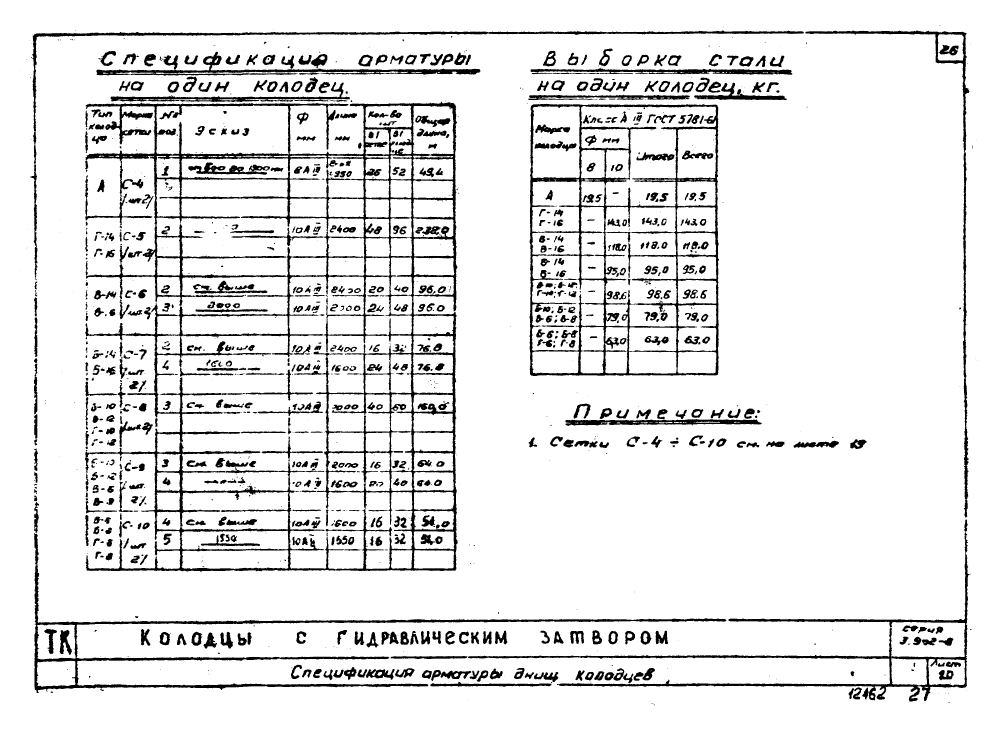 26
Спецификация арматуры
на один колодец.
Тип колодца | Марка сетки | №№ поз | Эскиз | Ф мм | Длина мм | Кол-во шт | Общая длина, м
А | С-4 /шт2/ | 1 | 8АIII | 26 | 52 | 49,4
Г-14 Г-16 | С-5 /шт2/ | 2 | 10АIII | 2400 | 48 | 96 | 230,0
В-14 | С-6 | 2 | см. выше | 10АIII | 2400 | 20 | 40 | 96,0
/шт2/ | 3 | 2000 | 10АIII | 2000 | 24 | 48 | 96.0
Б-14 | С-7 | 2 | см. выше | 10АIII | 2400 | 16 | 32 | 76.8
Б-16 | /шт 2/ | 4 | 1600 | 10АIII | 1600 | 24 | 48 | 76.8
В-10 В-12 Г-10 Г-12 | С-8 /шт2/ | 3 | см выше | 10АIII | 2000 | 40 | 160,0
Б-10 | С-9 | 3 | см. выше | 10АIII | 2000 | 16 | 32 | 64.0
Б-12 В-6 В-8 | /шт. 2/ | 4 | 10АIII | 1600 | 40 | 64.0
Б-6 Б-8 | С-10 | 4 | см. выше | 10АIII | 1600 | 16 | 32 | 51,0
Г-6 Г-8 | /шт 2/ | 5 | 1550 | 10АIII | 1550 | 16 | 32 | 51,0
Выборка стали
на один колодец, кг.
Марка колодца | Класс А III ГОСТ 5781-61
Ф мм | Итого | Всего
8 | 10
А | 19,5 | – | 19,5 | 19.5
Г-14 Г-16 | – | 143,0 | 143,0 | 143.0
В-14 В-16 | – | 118,0 | 118.0 | 118.0
В-14 В-16 | – | 95,0 | 95,0 | 95,0
– | 98,6 | 98,6 | 98.6
Б-10; Б-12 В-6; В-8 | – | 79,0 | 79,0 | 79,0
Б-6; Б-8 Г-6; Г-8 | – | 63,0 | 63,0 | 63.0
Примечание:
1. Сетки С-4 ÷ С-10 см. на листе 19
ТК
Колодцы с гидравлическим затвором
Серия 3.902-8
Спецификация арматуры днищ колодцев
Лист 20
12162 27